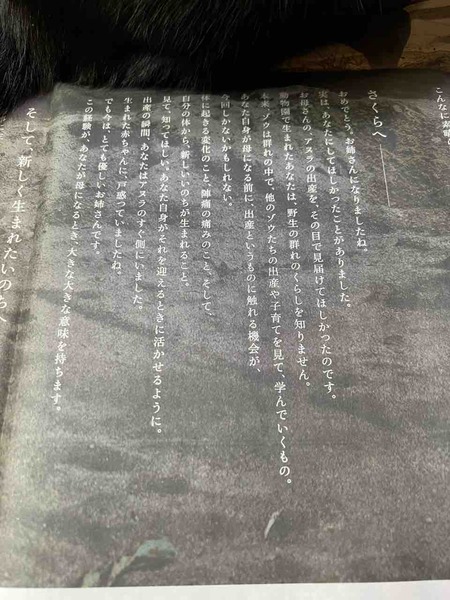 こんなに
さくらへ
おめでとう。お姉さんになりましたね。
実は、あなたにしてほしかったことがありました。
お母さんの、アヌラの出産を、その目で見届けてほしかったのです。
動物園で生まれたあなたは、野生の群れのくらしを知りません。
本来、ゾウは群れの中で、他のゾウたちの出産や子育てを見て、学んでいくもの。
あなた自身が母になる前に、出産というものに触れる機会が、
今回しかないかもしれない。
体に起きる変化のこと、陣痛の痛みのこと、そして、
自分の体から、新しいいのちが生まれること。
見て、知ってほしい。あなた自身がそれを迎えるときに活かせるように。
出産の瞬間、あなたはアヌラのすぐ側にいました。
生まれた赤ちゃんに、戸惑っていましたね。
でも今は、とても優しいお姉さんです。
この経験が、あなたが母になるとき、大きな大きな意味を持ちます。
そして、新しく生まれたいのちへ